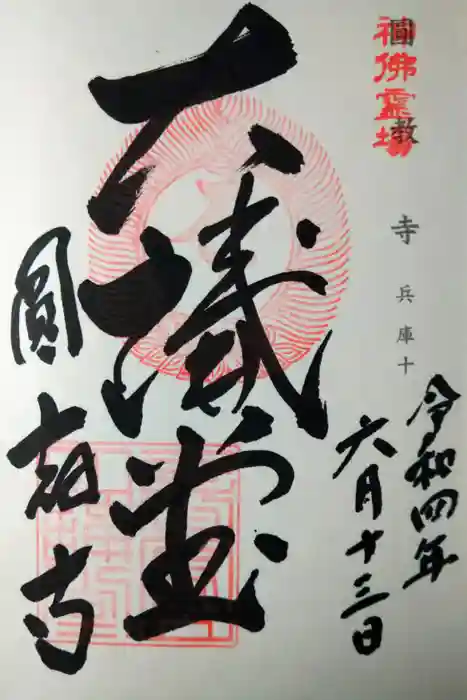 神佛霊場
圓教寺 兵庫十
令和四年
六月十三日
大講堂
圓教寺